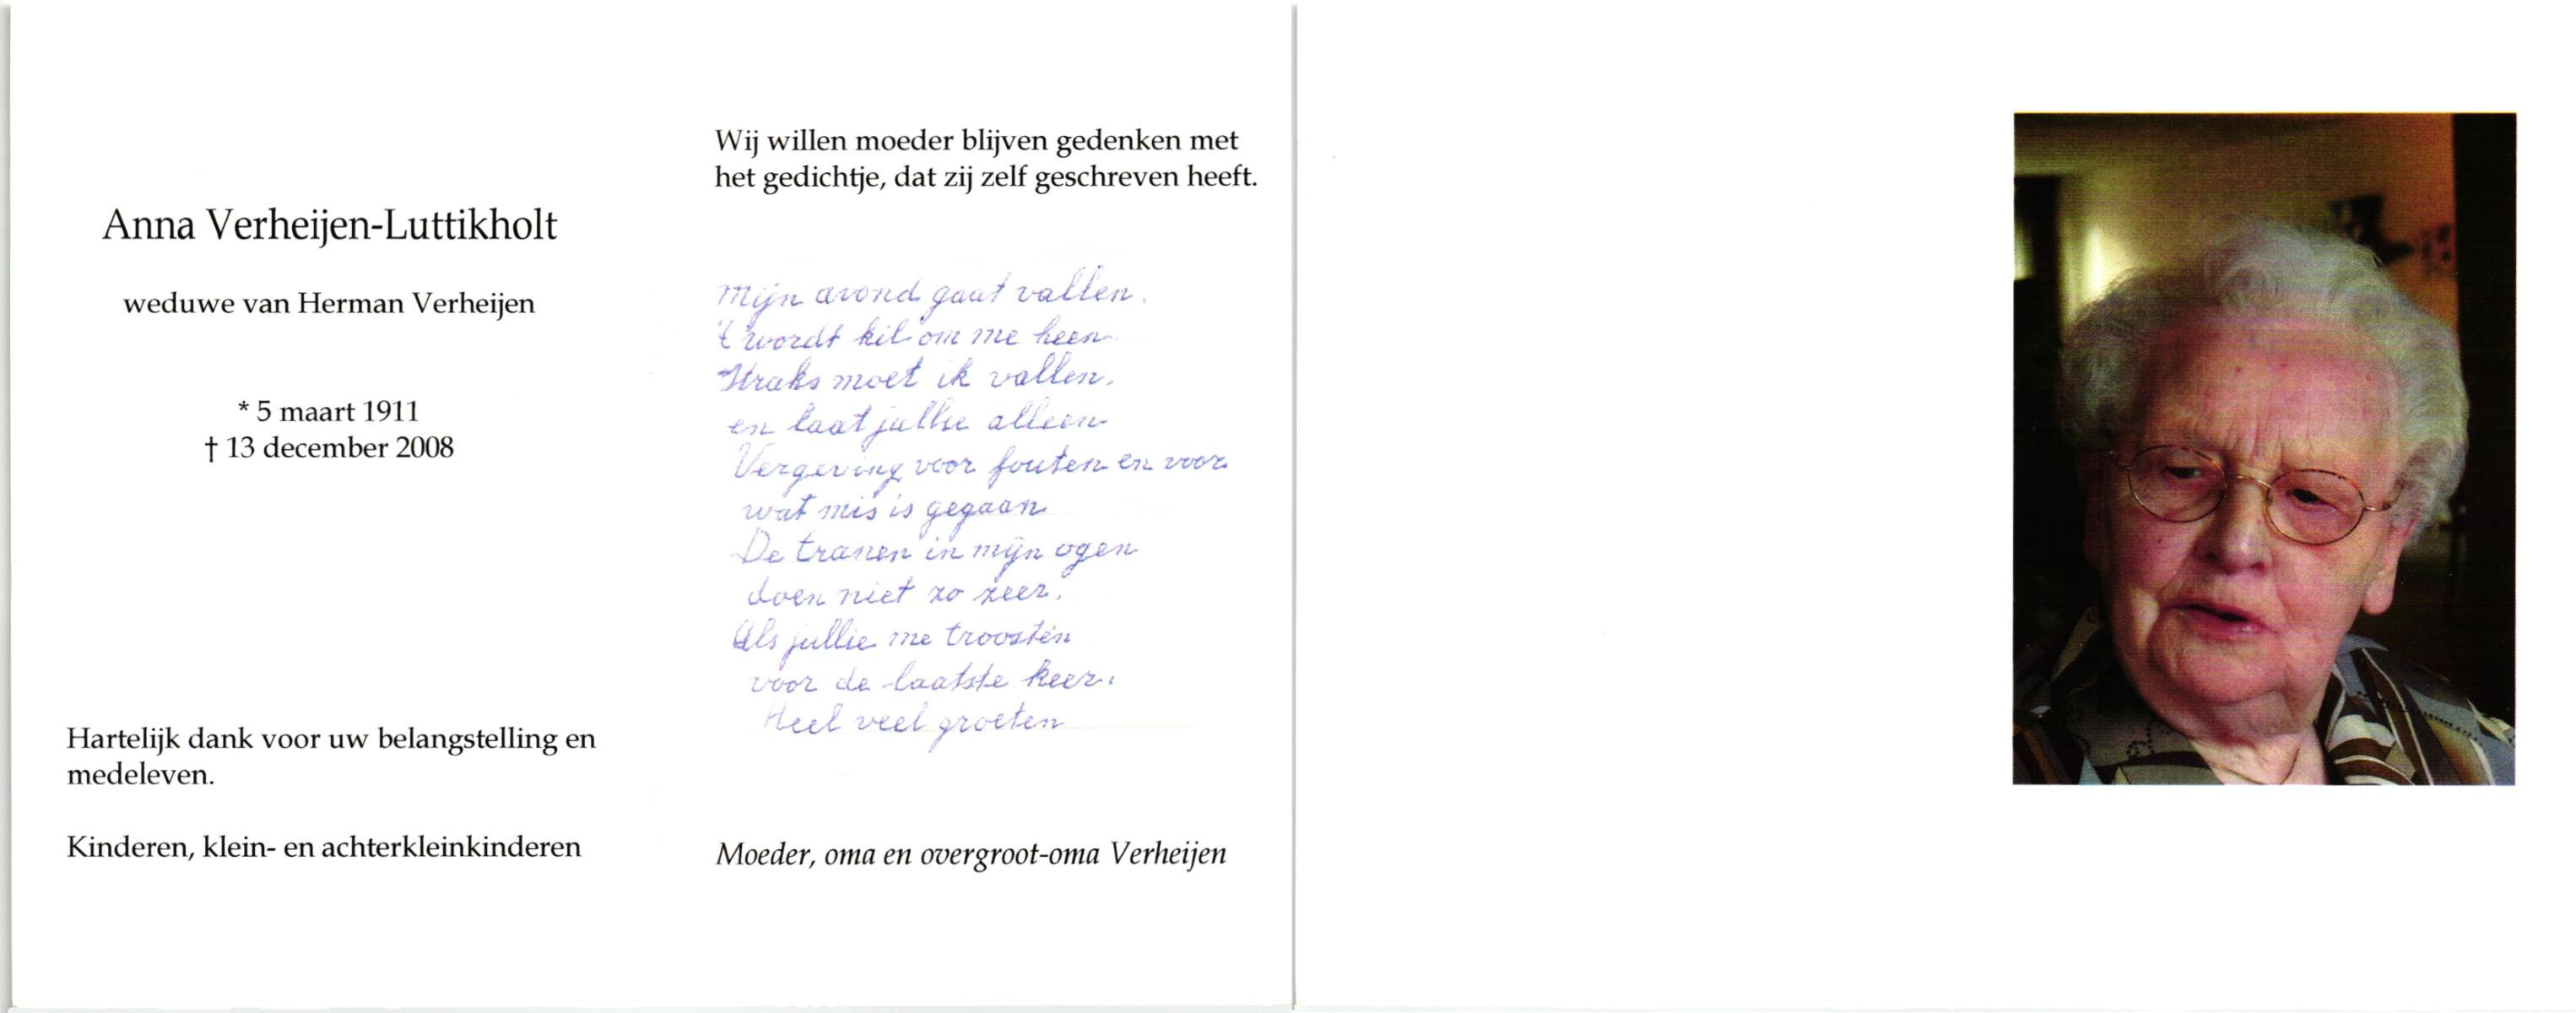 Anna Verheijen-Luttikholt
weduwe van Herman Verheijen
* 5 maart 1911
† 13 december 2008
Hartelijk dank voor uw belangstelling en
medeleven.
Kinderen, klein- en achterkleinkinderen
Wij willen moeder blijven gedenken met
het gedichtje, dat zij zelf geschreven heeft.
Mijn avond gaat vallen.
't wordt kil om me heen
Straks moet ik vallen.
en laat jullie alleen
Vergeving voor fouten en voor
wat mis is gegaan
De tranen in mijn ogen
doen niet zo zeer.
Als jullie me troosten
voor de laatste keer.
Heel veel groeten
Moeder, oma en overgroot-oma Verheijen